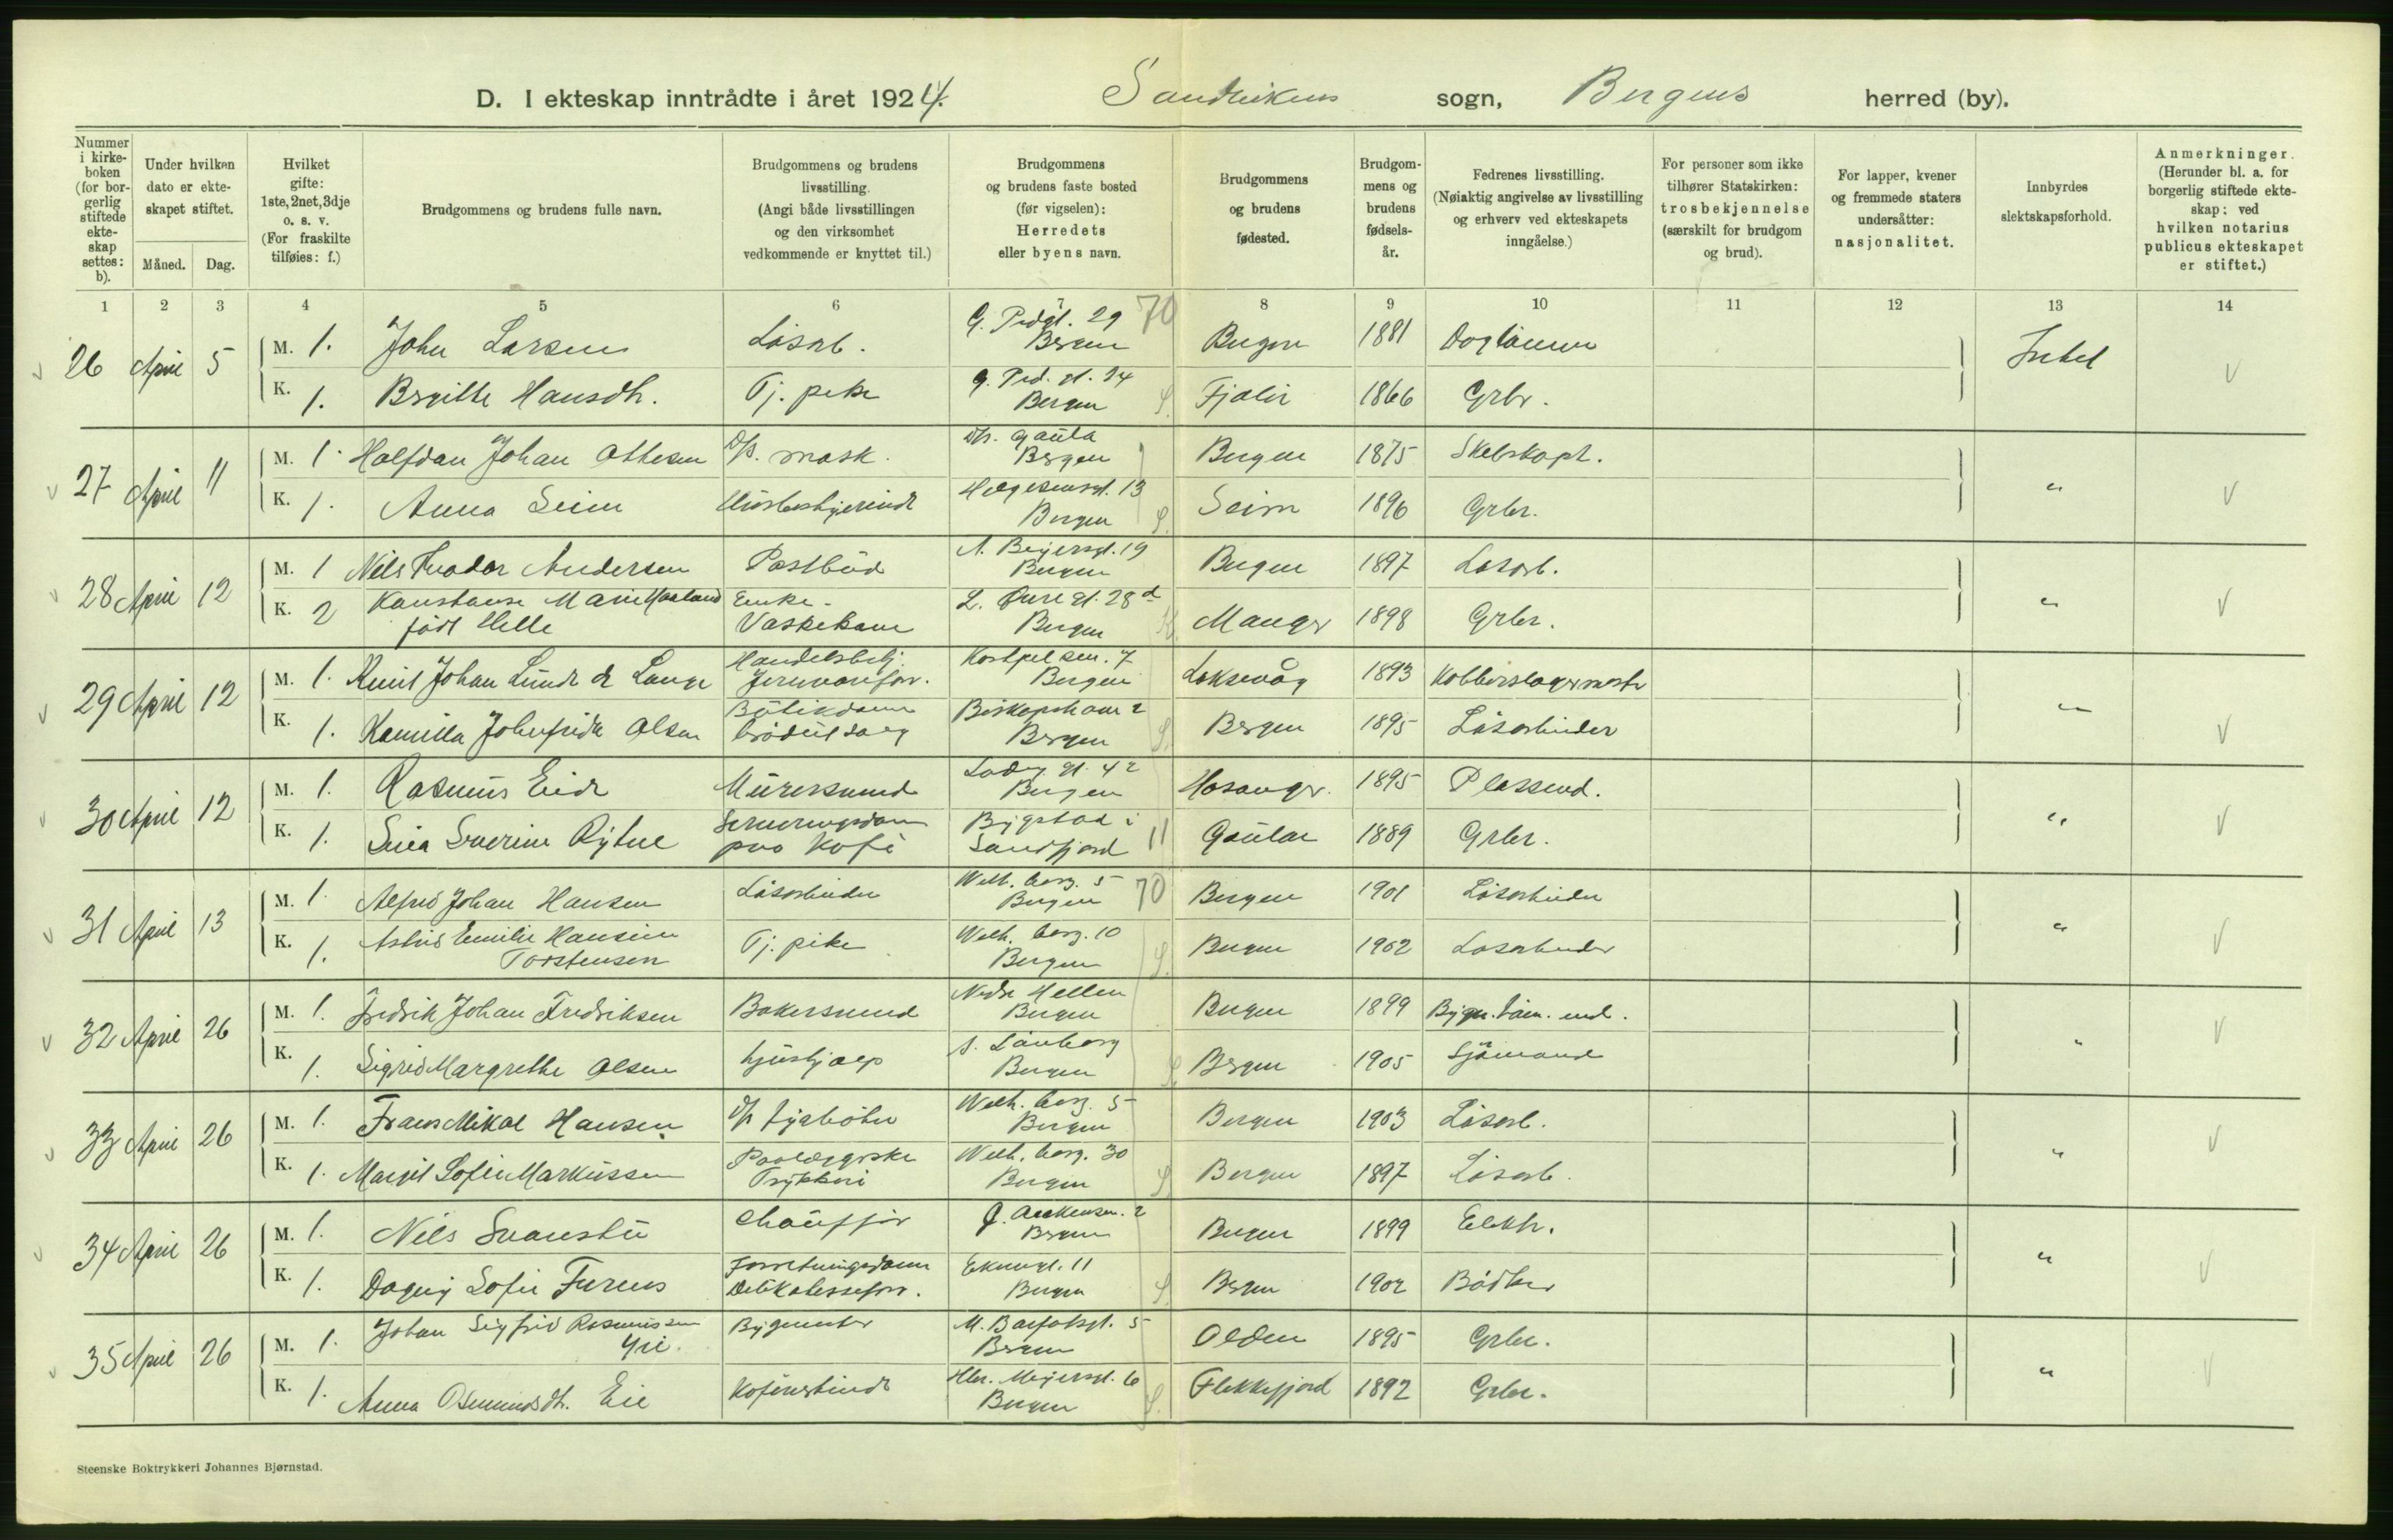 D. I ekteskap inntrådte i året 1924. Sandvikens sogn, Bergens herred (by).
Nummer i kirkeboken (for borgerlig stiftede ekteskap settes: b).
Under hvilken dato er ekteskapet stiftet.
Måned. Dag.
Hvilket gifte: 1ste, 2net, 3dje o. s. v. (For fraskilte tilføies: f.)
Brudgommens og brudens fulle navn.
Brudgommens og brudens livsstilling. (Angi både livsstillingen og den virksomhet vedkommende er knyttet til.)
Brudgommens og brudens faste bosted (før vigselen): Herredets eller byens navn.
Brudgommens og brudens fødested.
Brudgommens og brudens fødselsår.
Fedrenes livsstilling. (Nøiaktig angivelse av livsstilling og erhverv ved ekteskapets inngåelse.)
For personer som ikke tilhører Statskirken: trosbekjennelse (særskilt for brudgom og brud).
For lapper, kvener og fremmede staters undersåtter: nasjonalitet.
Innbyrdes slektskapsforhold.
Anmerkninger. (Herunder bl. a. for borgerlig stiftede ekteskap: ved hvilken notarius publicus ekteskapet er stiftet.)
1 2 3 4 5 6 7 8 9 10 11 12 13 14
26 April 5 M. 1. John Larsen Løsarb. 29 Bergen 70 Bergen 1881 Intet
K. 1. Hansdtr. Tj. pike Bergen Fjaler 1866 Grbr.
27 April 11 M. 1. Halfdan Johan Ottesen D/s. mask. D/s. Gaula Bergen Bergen 1875 Skibskapt. "
K. 1. Anna Seim Helgesensgt. 13 Bergen Seim 1896 Grbr.
28 April 12 M. 1 Nils Teodor Andersen Postbud A. Beyersgt. 19 Bergen Bergen 1897 Løsarb. "
K. 2 Konstanse Marie Maaland født Helle Enke. Vaskekone L. Øvregt. 28 d Bergen Manger 1898 Grbr.
29 April 12 M. 1. Knut Johan Lunde de Lange Handelsbetj. Jernvarefor. 7 Bergen Laksevåg 1893 Kobberslagermester "
K. 1. Kamilla Johnfride Olsen Butikdame brødutsalg Biskopshavn 2 Bergen Bergen 1895 Løsarbeider
30 April 12 M. 1. Rasmus Eide Murersvend 42 Bergen Hosanger 1895 Plassmd. "
K. 1. Severine Serveringsdame paa Kafe Bygstad i Sundfjord 11 Gaular 1889 Grbr.
31 April 13 M. 1. Alfred Johan Hansen Løsarbeider Welh. berg. 5 Bergen 70 Bergen 1901 Løsarbeider "
K. 1. Astrid Emilie Hansine Torstensen Tj. pike Welh. berg. 10 Bergen Bergen 1902 Løsarbeider
32 April 26 M. 1. Fredrik Johan Fredriksen Bakersvend Nedre Hellen Bergen Bergen 1899 "
K. 1. Sigrid Margrethe Olsen Hushjælp Bergen Bergen 1905 Sjømand
33 April 26 M. 1. Frans Mikal Hansen D/s fyrbøter Welh. berg. 5 Bergen Bergen 1903 Løsarb. "
K. 1. Margit Sofie Markussen Paalæggerske Trykkeri Welh. berg. 30 Bergen Bergen 1897 Løsarb.
34 April 26 M. 1. Nils Svanstu Chauffør 2 Bergen Bergen 1899 Elektr. "
K. 1. Dagny Sofie Furnes Forretningsdame Delikatesseforr. Ekrengt. 11 Bergen Bergen 1902 Bødker
35 April 26 M. 1. Johan Sigfrid Rasmussen Yri. Bygmester M. Barfotsgt. 5 Bergen Olden 1895 Grbr. "
K. 1. Anna Osmundsdtr. Eie Kafévertinde Hbr. Meyersgt. 6 Bergen Flekkefjord 1892 Grbr.
Steenske Boktrykkeri Johannes Bjørnstad.